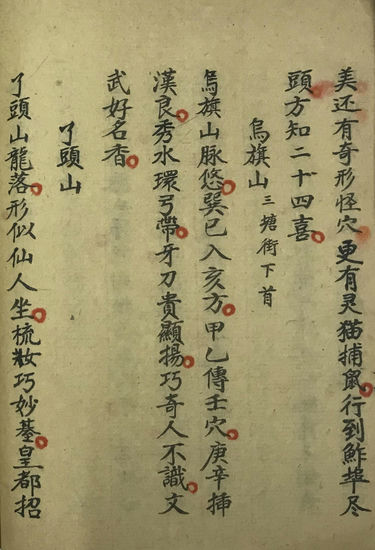 美还有奇形怪穴更有灵猫捕鼠行到鮓埠尽
頭方知二十四喜
烏旗山 三塘街下首
烏旗山脉悠巽已入亥方甲乙傳壬穴庚辛揷
漢良秀水環弓帶牙刀貴顯揚巧奇人不識文
武好名香
了頭山
了頭山龍落形似仙人坐梳妝巧妙墓皇都招